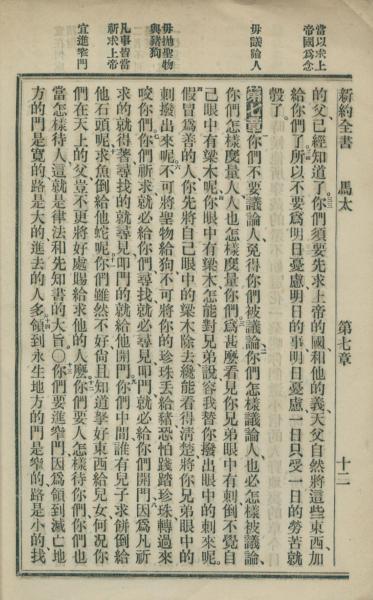 新約全書
馬太
第七章
十二
當以求上
帝國爲念
毋議論人
毋拋聖物
與豬狗
凡事皆當
祈求上帝
宜進窄門
的父、已經知道了你們須要先求上帝的國和他的義、天父自然將這些東西加
給你們了、所以不要爲明日憂慮、明日的事、明日憂慮一日只受一日的勞苦就
彀了。
第七章 你們不要議論人、免得你們被議論、你們怎樣議論人、也必怎樣被議論、
你們怎樣度量人、人也怎樣度量你們、爲甚麼看見你兄弟眼中有刺、倒不覺自
己眼中有梁木呢、你眼中有梁木、怎能對兄弟說、容我替你撥出眼中的刺來呢。
假冒爲善的人、你先將自己眼中的梁木除去、纔能看得清楚、將你兄弟眼中的
刺撥出來呢。不可將聖物給狗、不可將你的珍珠丟給豬、恐怕踐踏珍珠、轉過來
咬你們、你們祈求就必給你們、尋找就必尋見、叩門就必給你們開門、因爲凡祈
求的就得著、尋找的就尋見、叩門的就給他開門、你們中間誰有兒子求餅、倒給
他石頭呢、求魚、倒給他蛇呢、你們雖然不好、尚且知道拏好東西給兒女、何況你
們在天上的父、豈不更將好處賜給求他的人麼、你們要人怎樣待你們、你們也
當怎樣待人、這就是律法和先知書的大旨。○你們要進窄門、因爲領到滅亡地
方的門是寬的、路是大的、進去的人多、領到永生地方的門是窄的、路是小的、找